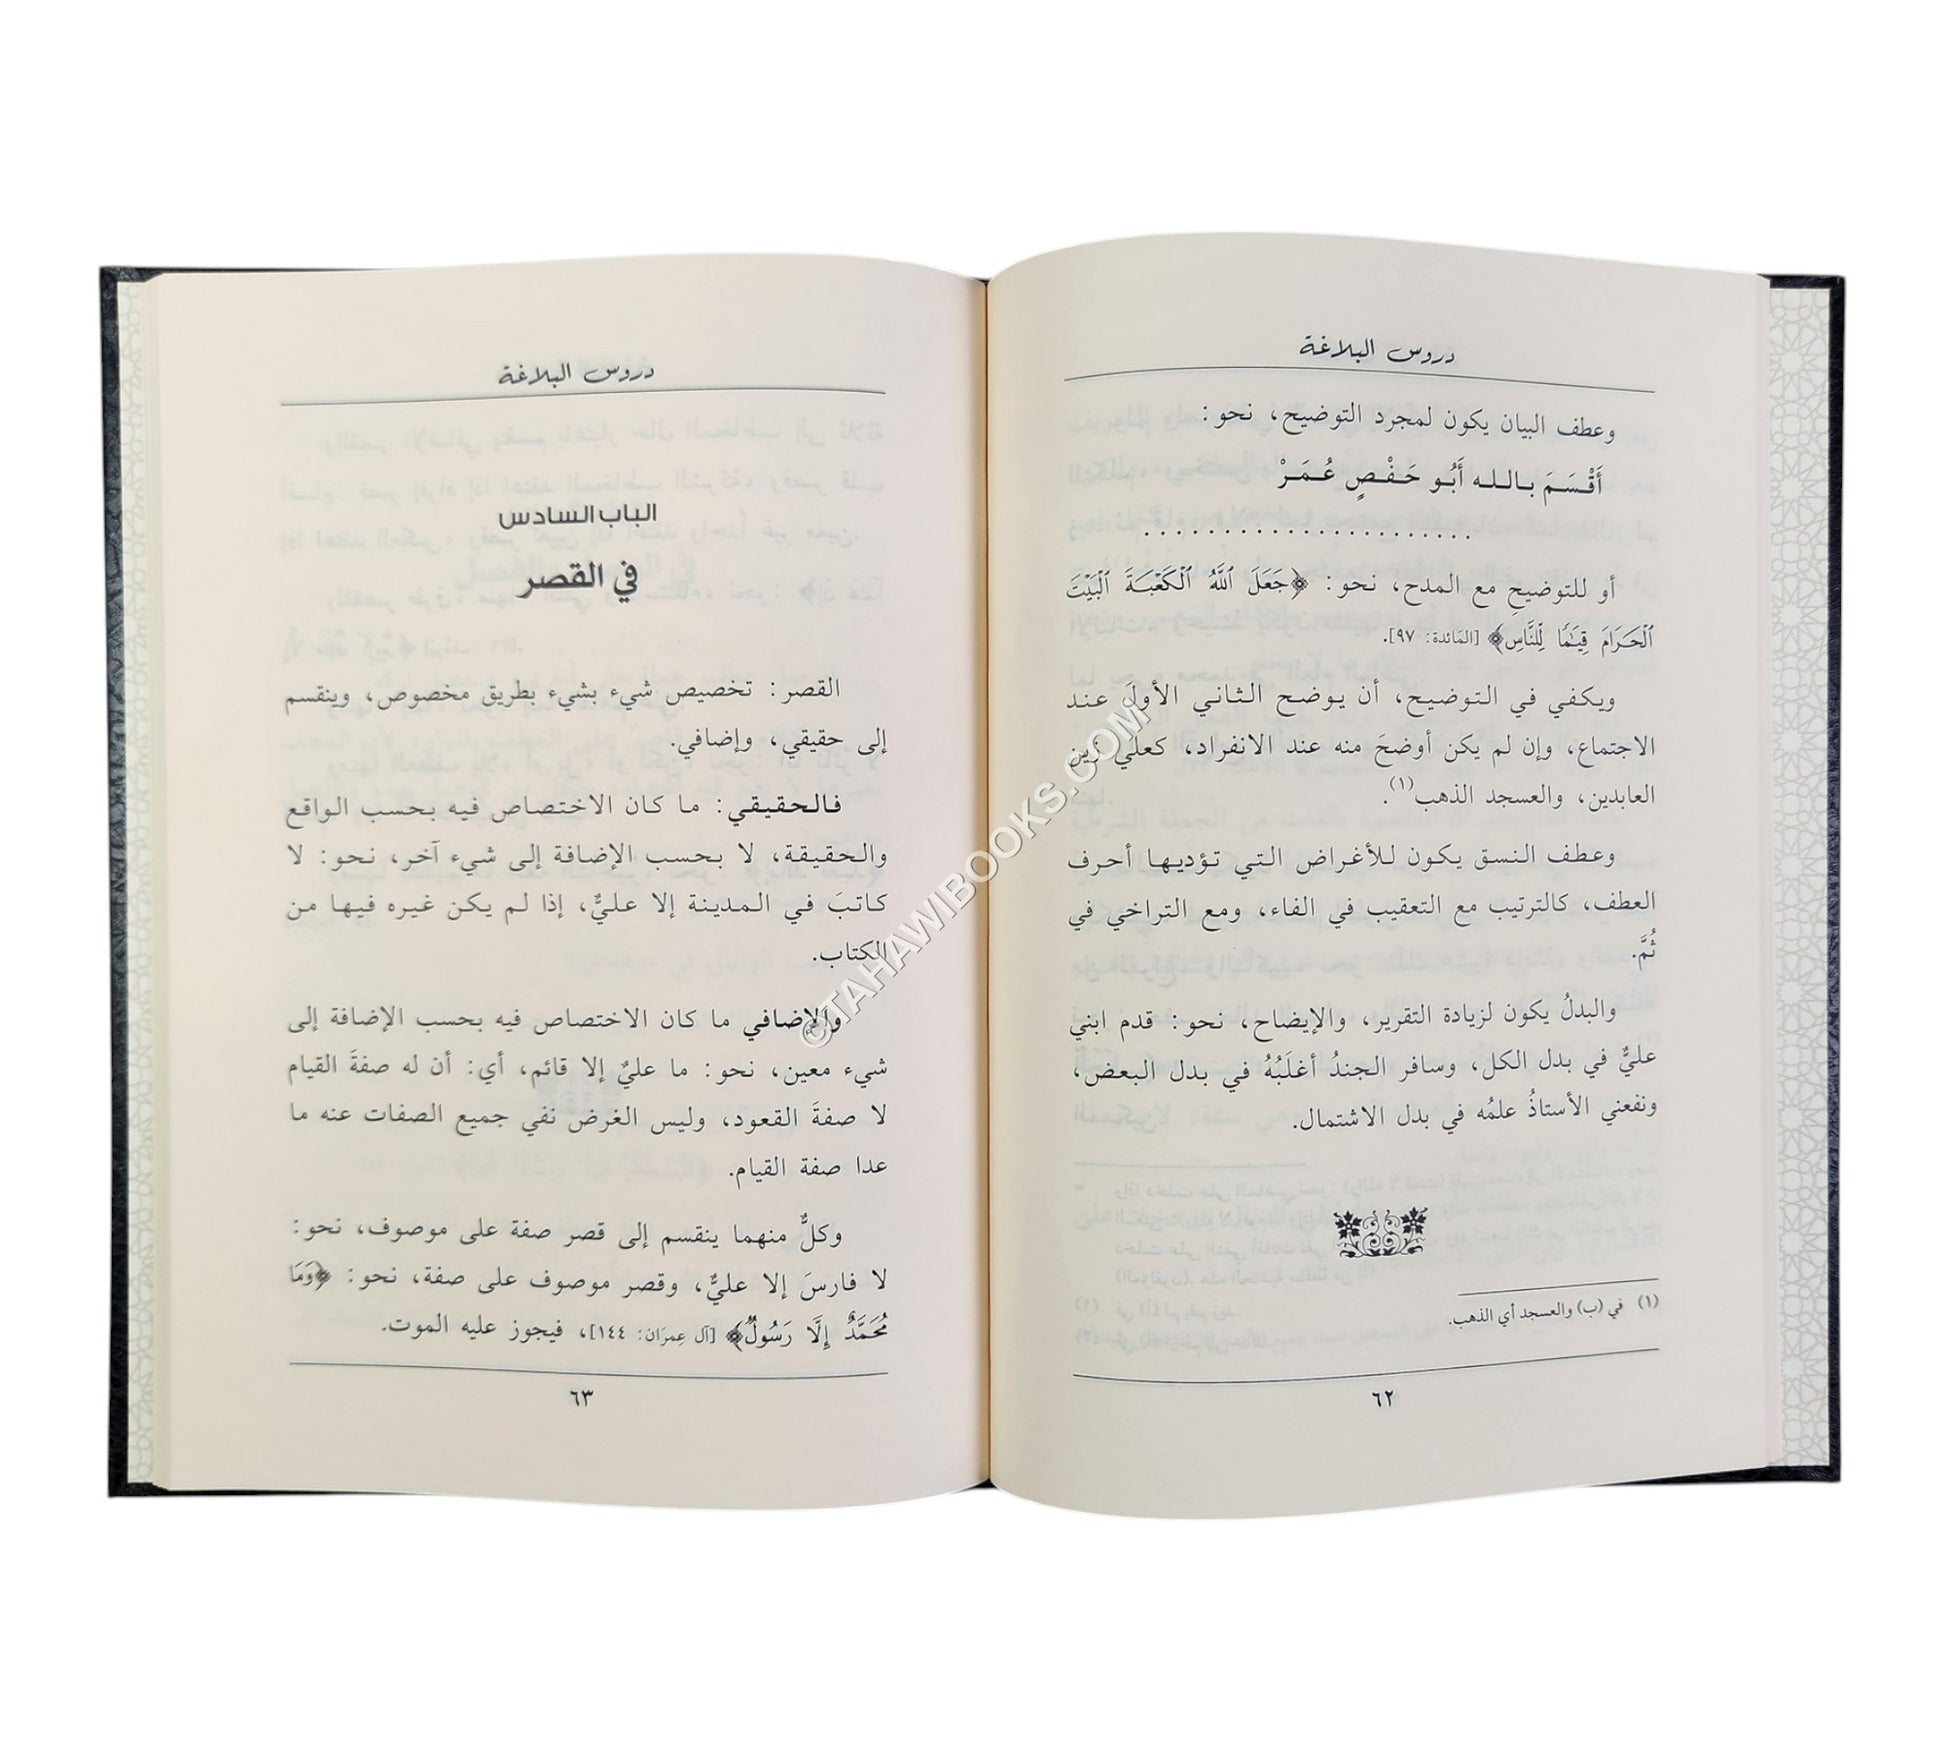 دروس البلاغة
وعطف البيان يكون لمجرد التوضيح، نحو:
أَقْسَمَ بالله أَبُو حَفْصٍ عُمَرْ
......................
أو للتوضيحِ مع المدح، نحو: ﴿جَعَلَ ٱللَّهُ ٱلْكَعْبَةَ ٱلْبَيْتَ
ٱلْحَرَامَ قِيَٰمًا لِّلنَّاسِ﴾ [المَائدة: ٩٧].
ويكفي في التوضيح، أن يوضح الثاني الأولَ عند
الاجتماع، وإن لم يكن أوضحَ منه عند الانفراد، كعلي زين
العابدين، والعسجد الذهب(١).
وعطف النسق يكون للأغراض التي تؤديها أحرف
العطف، كالترتيب مع التعقيب في الفاء، ومع التراخي في
ثُمَّ.
والبدلُ يكون لزيادة التقرير، والإيضاح، نحو: قدم ابني
عليٌّ في بدل الكل، وسافر الجندُ أغلَبُهُ في بدل البعض،
ونفعني الأستاذُ علمُه في بدل الاشتمال.
(١) في (ب) والعسجد أي الذهب.
٦٢
دروس البلاغة
الباب السادس
في القصر
القصر: تخصيص شيء بشيء بطريق مخصوص، وينقسم
إلى حقيقي، وإضافي.
فالحقيقي: ما كان الاختصاص فيه بحسب الواقع
والحقيقة، لا بحسب الإضافة إلى شيء آخر، نحو: لا
كاتبَ في المدينة إلا عليٌّ، إذا لم يكن غيره فيها من
الكتاب.
والإضافي ما كان الاختصاص فيه بحسب الإضافة إلى
شيء معين، نحو: ما عليٌ إلا قائم، أي: أن له صفةَ القيام
لا صفةَ القعود، وليس الغرض نفي جميع الصفات عنه ما
عدا صفة القيام.
وكلٌّ منهما ينقسم إلى قصر صفة على موصوف، نحو:
لا فارسَ إلا عليٌّ، وقصر موصوف على صفة، نحو: ﴿وَمَا
مُحَمَّدٌ إِلَّا رَسُولٌ﴾ [آل عِمرَان: ١٤٤]، فيجوز عليه الموت.
٦٣
©TAHAWIBOOKS.COM